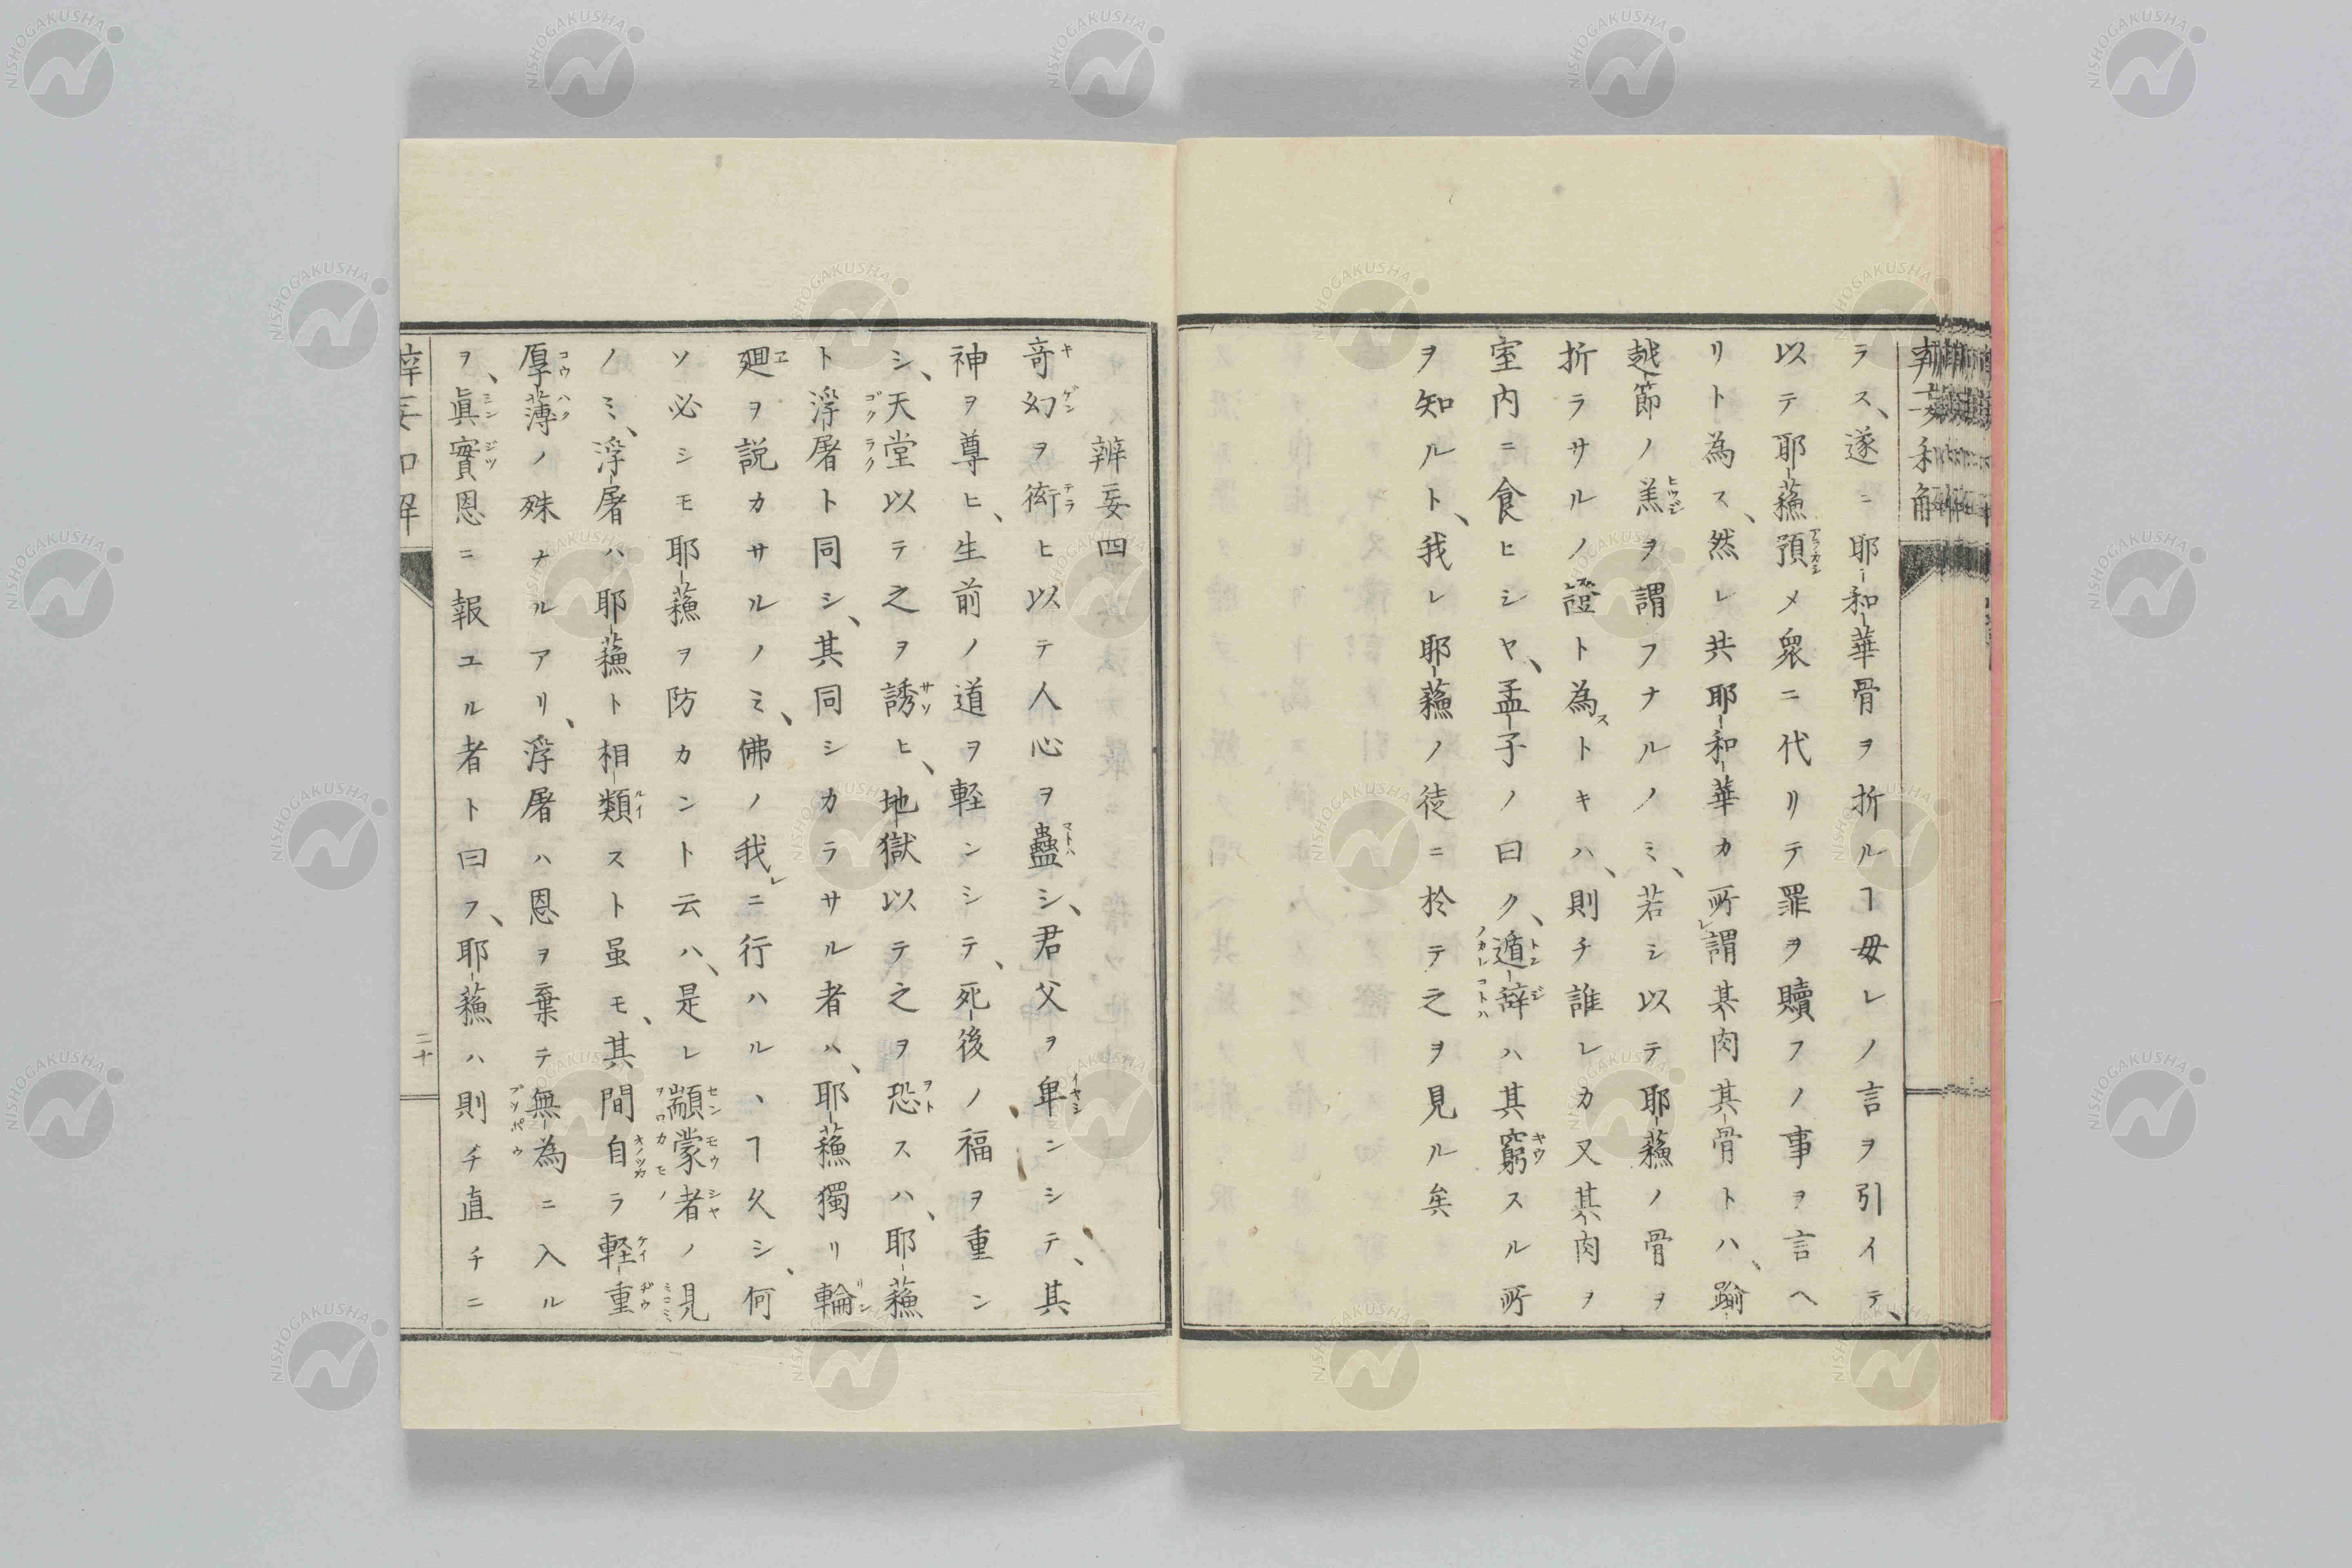 ラス、遂ニ耶和華骨ヲ折ルヿ毋レノ言ヲ引イテ、
以テ耶蘓預メ衆ニ代リテ罪ヲ贖フノ事ヲ言ヘ
リト為ス、然レ共耶和華カ所謂其肉其骨トハ、踰
越節ノ羔ヲ謂フナルノミ、若シ以テ耶蘓ノ骨ヲ
折ラサルノ證ト為ストキハ、則チ誰レカ又其肉ヲ
室内ニ食ヒシヤ、孟子ノ曰ク、遁辞ハ其窮スル所
ヲ知ルト、我レ耶蘓ノ徒ニ於テ之ヲ見ル矣
辨妄四
竒幻ヲ衒ヒ以テ人心ヲ蠱シ、君父ヲ卑ンシテ、其
神ヲ尊ヒ、生前ノ道ヲ軽ンシテ、死後ノ福ヲ重ン
シ、天堂以テ之ヲ誘ヒ、地獄以テ之ヲ恐スハ、耶蘓
ト浮屠ト同シ、其同シカラサル者ハ、耶蘓獨リ輪
廻ヲ説カサルノミ、佛ノ我ニ行ハルヽヿ久シ、何
ソ必シモ耶蘓ヲ防カント云ハ、是レ顓蒙者ノ見
ノミ、浮屠ハ耶蘓ト相類スト虽モ、其間自ラ軽重
厚薄ノ殊ナルアリ、浮屠ハ恩ヲ棄テ無為ニ入ル
ヲ、眞實恩ニ報ユル者ト曰フ、耶蘓ハ則チ直チニ
辨妄和解
二十
NISHOGAKUSHA